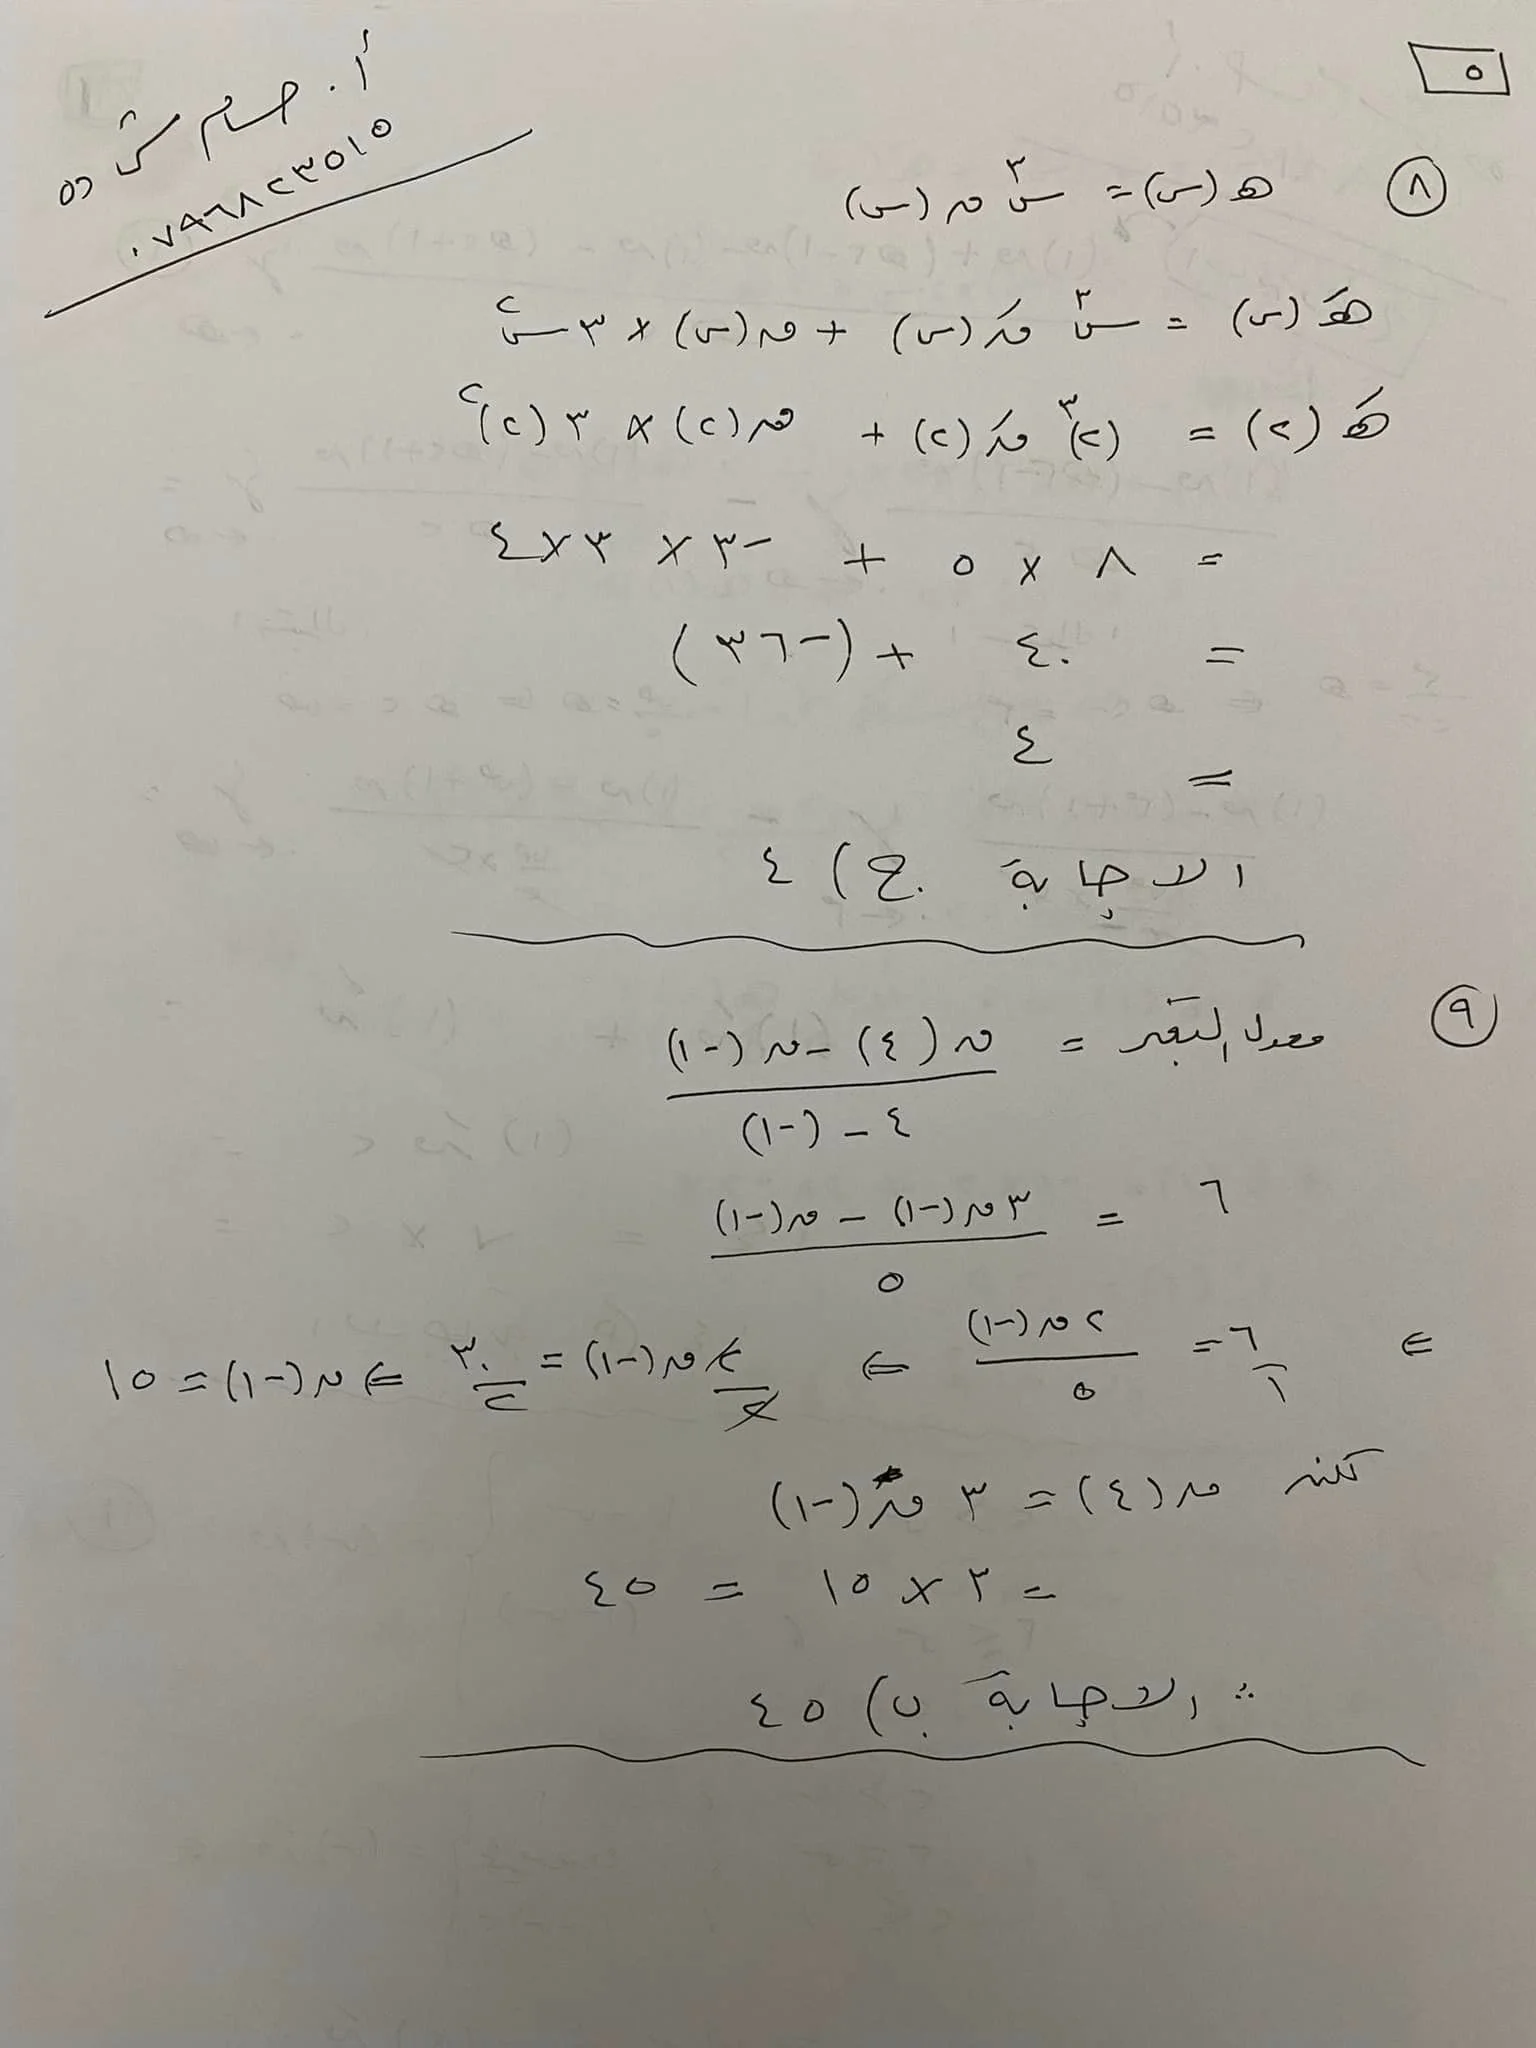 ٥
أ. حسام
٠٧٩٦٨٢٣٥١٥
٨ هـ(س) = س٣ ق(س)
هـَ(س) = س٣ قَ(س) + ق(س) × ٣س٢
هـَ(٢) = (٢)٣ قَ(٢) + ق(٢) × ٣(٢)٢
= ٨ × ٥ + -٣ × ٣ × ٤
= ٤٠ + (-٣٦)
= ٤
الاجابة ج) ٤
٩ معدل التغير = ق(٤) - ق(-١)
٤ - (-١)
٦ = ٣ق(-١) - ق(-١)
٥
⇐ ٦/١ = ٢ق(-١)/٥ ⇐ ٢ق(-١)/٢ = ٣٠/٢ ⇐ ق(-١) = ١٥
لكن ق(٤) = ٣ ق(-١)
= ٣ × ١٥ = ٤٥
∴ الاجابة ب) ٤٥